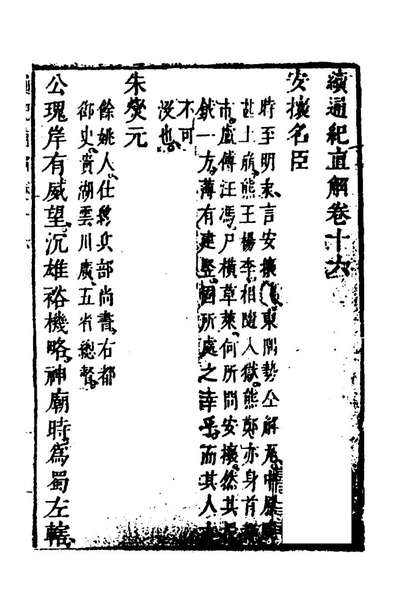 續通紀直解卷十六
安攘名臣
時至明末言安攘東隅勢仝解瓦中原
甚土崩熊王楊李相隨入獄熊鄭亦身首
市盧傅汪馮尸橫草萊何所問安攘然其
鉞一方薄有建竪固所處之幸乎而其人
不可
沒也
朱燮元
餘姚人仕終兵部尚書右都
御史貴湖雲川廣五省總督
公瑰岸有威望沉雄裕機略神廟時為蜀左轄